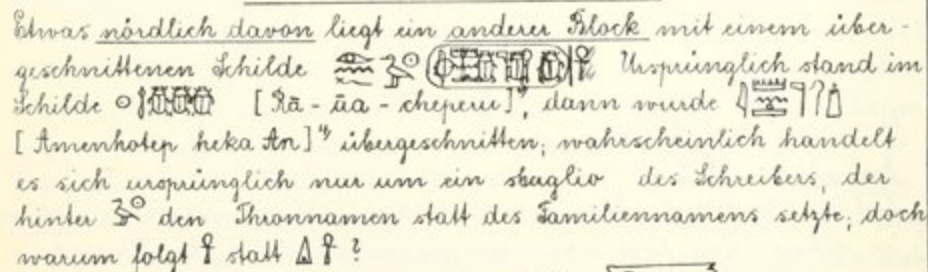 Etwas nördlich davon liegt ein anderer Block mit einem über-
geschnittenen Schilde Ursprünglich stand im
Schilde [Rā-ūa-cheperu]", dann wurde
[Amenhotep heka An]" übergeschnitten; wahrscheinlich handelt
es sich ursprünglich nur um ein sbaglio des Schreibers, der
hinter den Thronnamen statt des Familiennamens setzte; doch
warum folgt 𓋹 statt 𓋹 ?